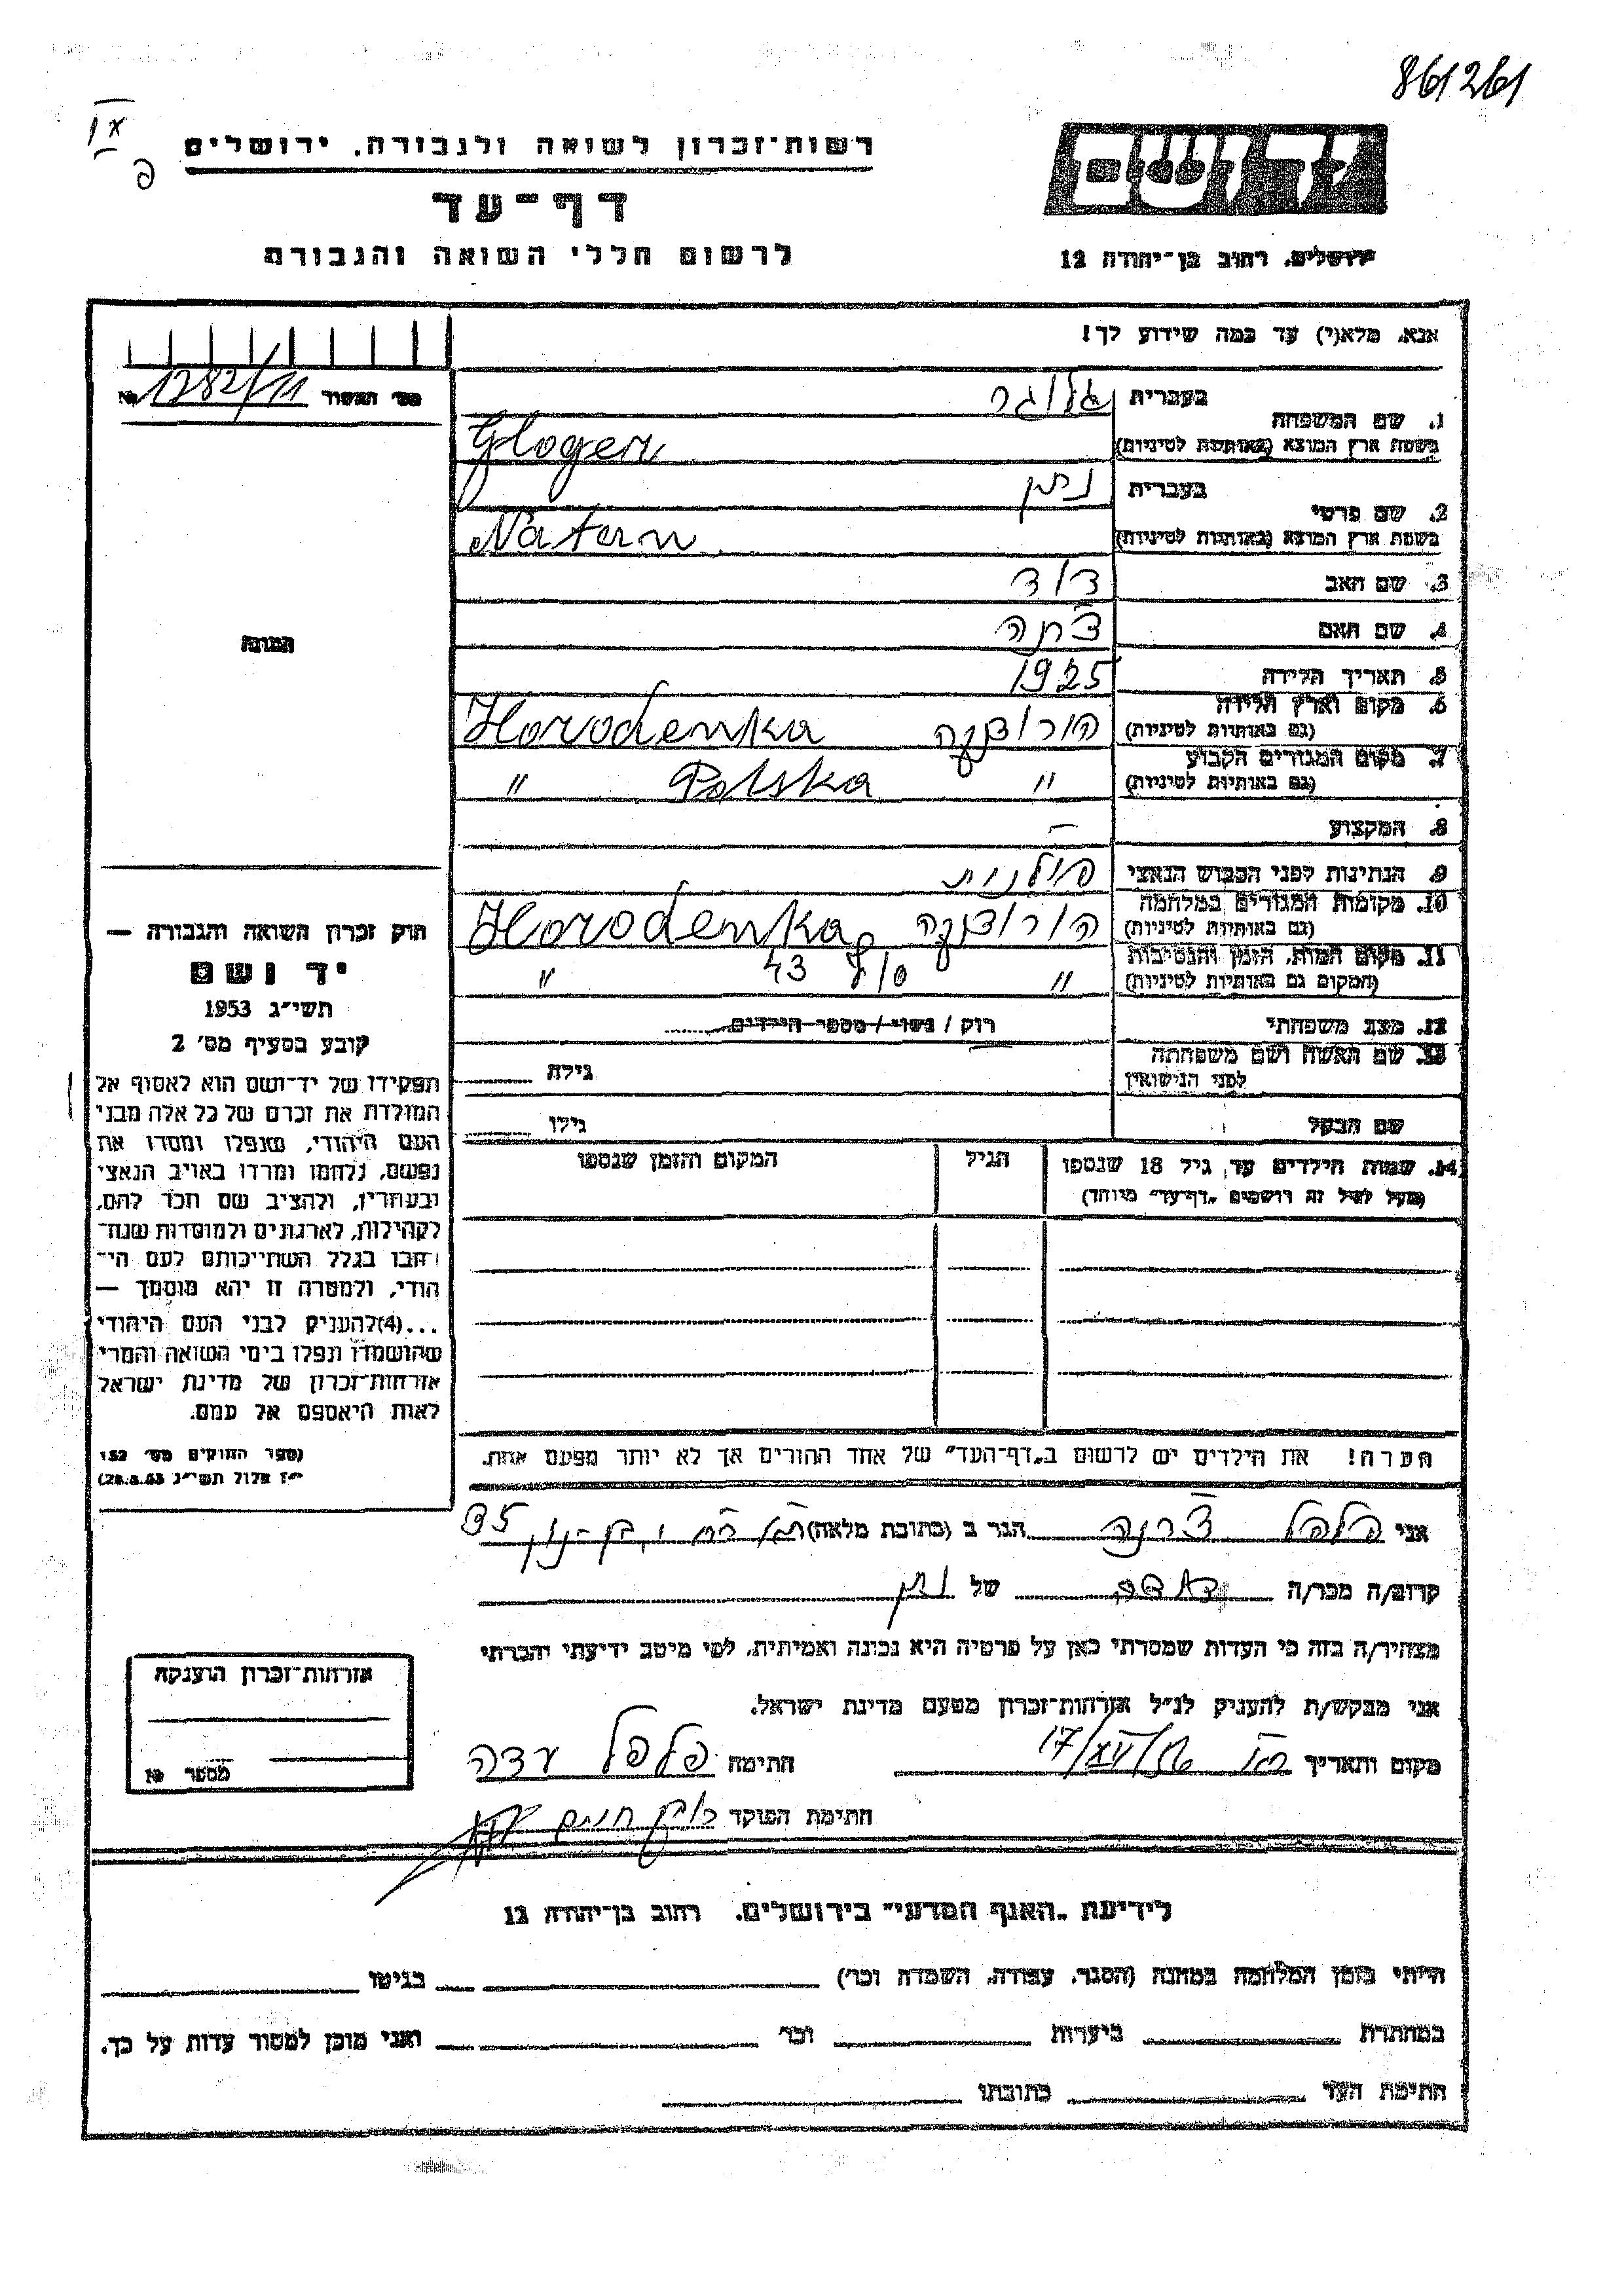 861261
רשות־זכרון לשואה ולגבורה, ירושלים
דף־עד
לרשום חללי השואה והגבורה
יד ושם
ירושלים, רחוב בן־יהודה 12
אנא, מלא(י) עד כמה שידוע לך!
מס' האשור № 1282/11
1. שם המשפחה
בעברית גלוגר
בשפת ארץ המוצא (באותיות לטיניות) Gloger
2. שם פרטי
בעברית נתן
בשפת ארץ המוצא (באותיות לטיניות) Natan
3. שם האב דוד
4. שם האם
5. תאריך הלידה 1925
6. מקום וארץ הלידה
(גם באותיות לטיניות) הורודנקה Horodenka
7. מקום המגורים הקבוע
(גם באותיות לטיניות) " Polska "
8. המקצוע —
9. הנתינות לפני הכבוש הנאצי פולנית
10. מקומות המגורים במלחמה
(גם באותיות לטיניות) הורודנקה Horodenka
11. מקום המות, הזמן והנסיבות
(המקום גם באותיות לטיניות) " 43 "
12. מצב משפחתי רוק / נשוי / מספר הילדים
13. שם האשה ושם משפחתה
לפני הנישואין גילה
שם הבעל גילו
14. שמות הילדים עד גיל 18 שנספו הגיל המקום והזמן שנספו
(מעל לגיל זה רושמים „דף־עד" מיוחד)
הערה! את הילדים יש לרשום ב„דף־העד" של אחד ההורים אך לא יותר מפעם אחת.
התמונה
חוק זכרון השואה והגבורה —
יד ושם
תשי"ג 1953
קובע בסעיף מס' 2
תפקידו של יד־ושם הוא לאסוף אל
המולדת את זכרם של כל אלה מבני
העם היהודי, שנפלו ומסרו את
נפשם, נלחמו ומרדו באויב הנאצי
ובעוזריו, ולהציב שם וזכר להם,
לקהילות, לארגונים ולמוסדות שנח־
רבו בגלל השתייכותם לעם הי־
הודי, ולמטרה זו יהא מוסמך —
...(4)להעניק לבני העם היהודי
שהושמדו ונפלו בימי השואה והמרי
אזרחות־זכרון של מדינת ישראל
לאות היאספם אל עמם.
(ספר החוקים מס' 132
י"ז אלול תשי"ג 28.8.53)
אני פלפל הגר ב (כתובת מלאה) 35
קרוב/ה מכר/ה של נתן
מצהיר/ה בזה כי העדות שמסרתי כאן על פרטיה היא נכונה ואמיתית, לפי מיטב ידיעתי והכרתי
אני מבקש/ת להעניק לנ"ל אזרחות־זכרון מטעם מדינת ישראל.
מקום ותאריך חתימה פלפל עדה
חתימת הפוקד חיים
אזרחות־זכרון הוענקה
מספר №
לידיעת „האגף המדעי" בירושלים, רחוב בן־יהודה 12
הייתי בזמן המלחמה במחנה (הסגר, עבודה, השמדה וכו') בגיטו
במחתרת ביערות וכו' ואני מוכן למסור עדות על כך.
חתימת העד כתובתו